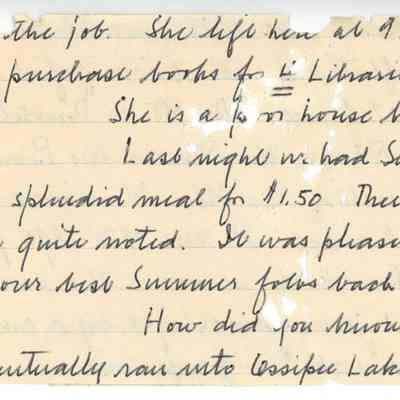 the job. She left here at 9
purchase books for 4 Librari
She is a poor house k
Last night we had Su
splendid meal for $1.50 The
quite noted. It was pleas
our best Summer folks back
How did you know
entually ran into Ossipee Lak